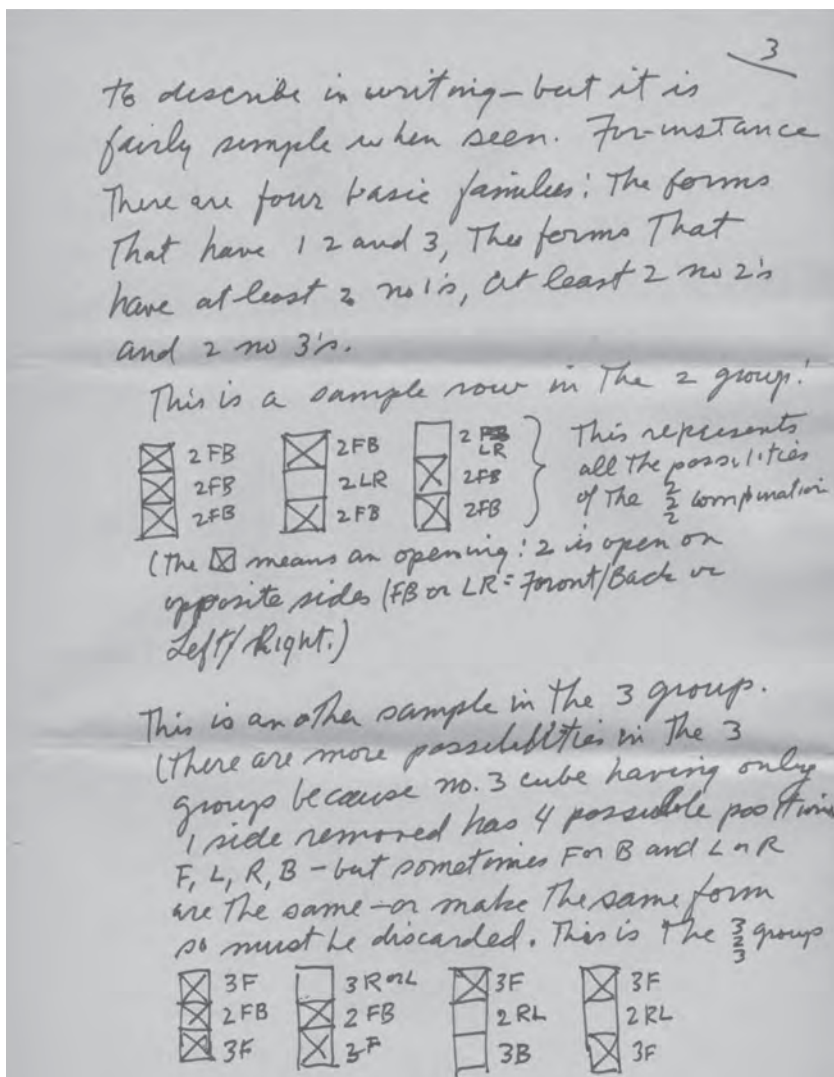 3
to describe in writing—but it is
fairly simple when seen. For-instance
There are four basic families: The forms
That have 1 2 and 3, The forms That
have at least 2 no 1's, at least 2 no 2's
and 2 no 3's.
This is a sample row in The 2 group:
2 FB 2 FB 2 LR
2 FB 2 LR 2 FB
2 FB 2 FB 2 FB
This represents
all the possilities
of The 2 2 2 combination
(The ☒ means an opening: 2 is open on
opposite sides (FB or LR = Foront/Back or
Left/Right.)
This is another sample in The 3 group.
(there are more possibilities in The 3
group because no. 3 cube having only
1 side removed has 4 possible positions
F, L, R, B – but sometimes F or B and L or R
are the same – or make The same form
so must be discarded. This is The 3 2 3 group
3F 3R or L 3F 3F
2FB 2FB 2RL 2RL
3F 3F 3B 3F